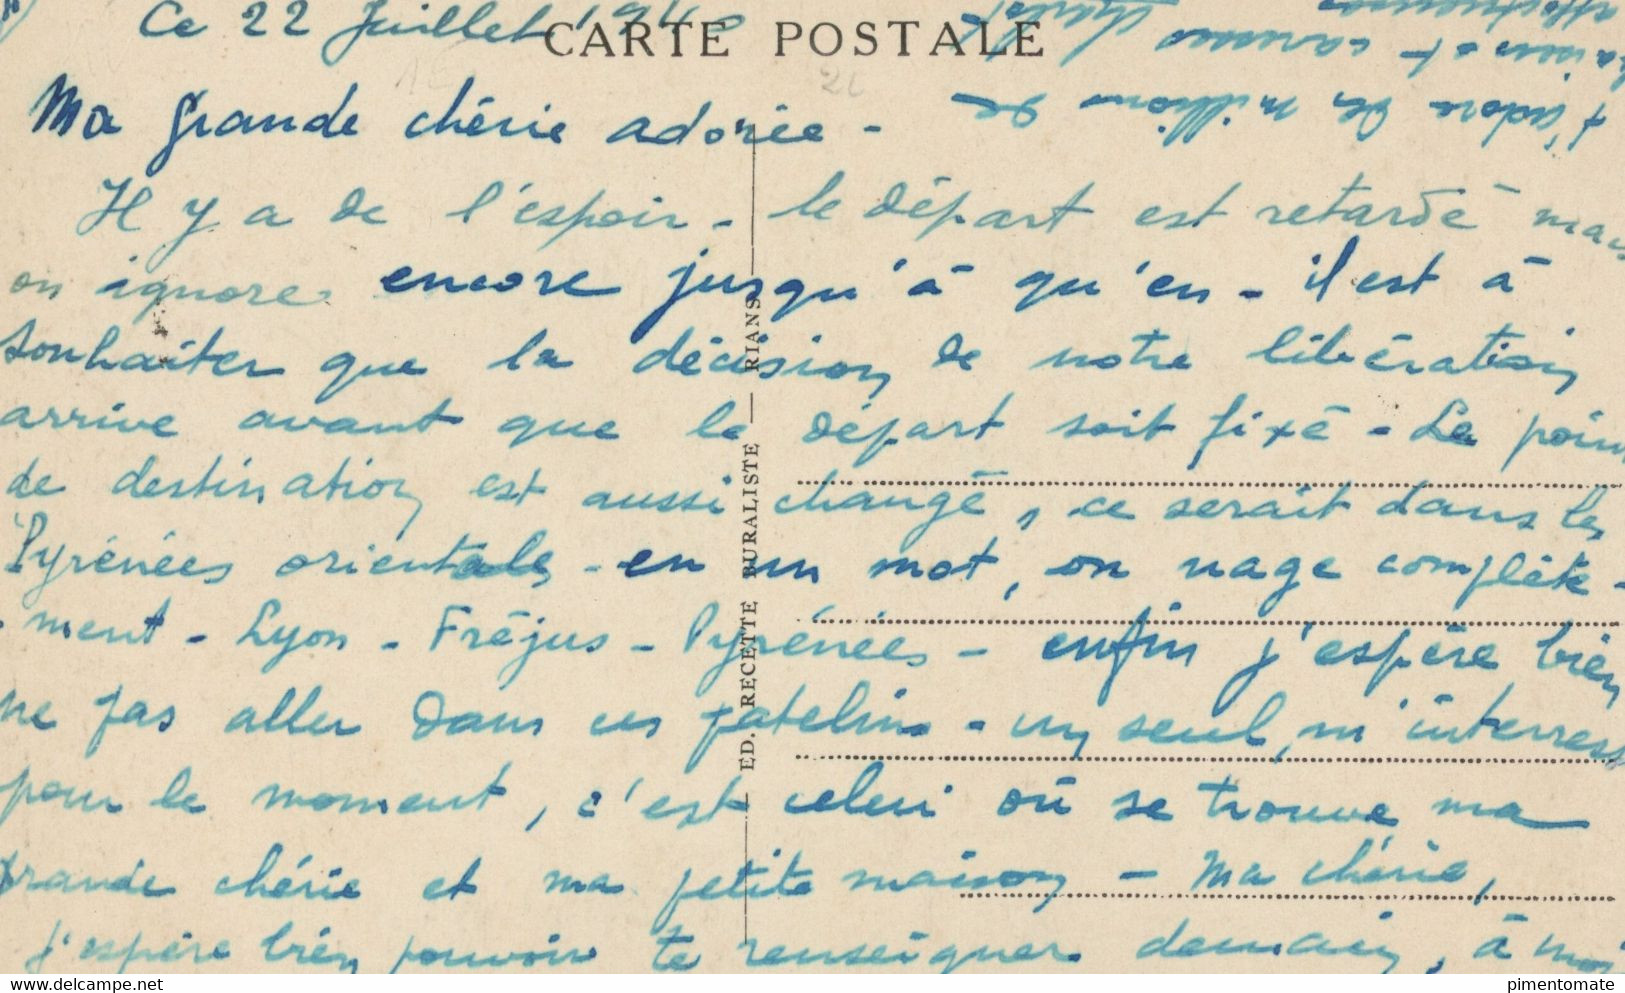 Ce 22 Juillet 1940
CARTE POSTALE
Ma grande chérie adorée -
Il y a de l'espoir - le départ est retardé mais
on ignore encore jusqu'à qu'en - il est à
souhaiter que la décision de notre libération
arrive avant que le départ soit fixé - Le point
de destination est aussi changé, ce serait dans les
Pyrénées orientales - en un mot, on nage complète-
-ment - Lyon - Fréjus - Pyrénées - enfin j'espère bien
ne pas aller dans ces patelins - un seul m'interresse
pour le moment, c'est celui où se trouve ma
grande chérie et ma petite maison - Ma chérie,
j'espère bien pouvoir te renseigner demain, à moi
t'adore de millions de
baisers et caresses
affectueuses
ED. RECETTE BURALISTE — RIANS
delcampe.net
pimentomate